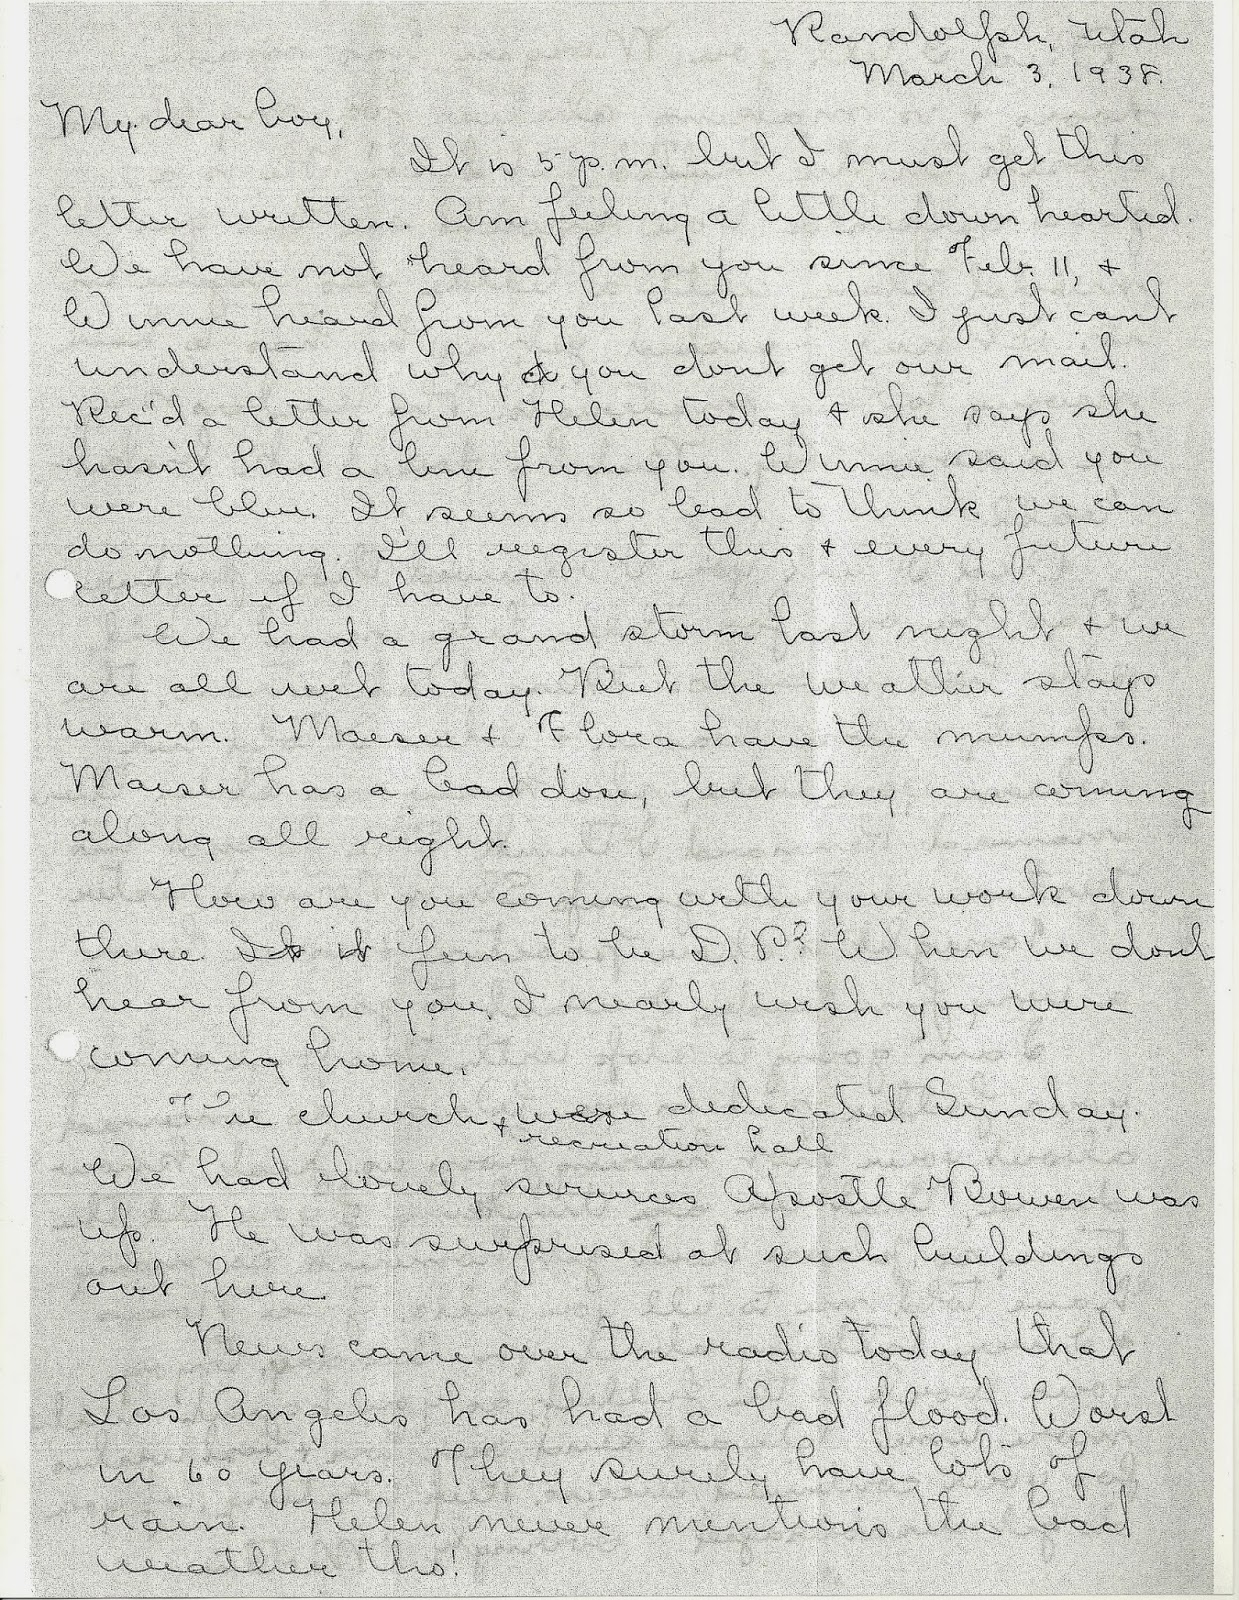 Randolph, Utah
March 3, 1938.
My dear boy,
It is 5 p.m. but I must get this
letter written. Am feeling a little down hearted.
We have not heard from you since Feb. 11, +
Winnie heard from you last week. I just can't
understand why you dont get our mail.
Rec'd a letter from Helen today + she says she
hasn't had a line from you. Winnie said you
were blue. It seems so bad to think we can
do nothing. I'll register this + every future
letter if I have to.
We had a grand storm last night + we
are all wet today. But the weather stays
warm. Maeser + Flora have the mumps.
Maeser has a bad dose, but they are coming
along all right.
How are you coming with your work down
there. Is it fun to be D.P.? When we dont
hear from you, I nearly wish you were
coming home.
The church + recreation hall were dedicated Sunday.
We had lovely services Apostle Bowen was
up. He was surprised at such buildings
out here.
News came over the radio today that
Los Angeles has had a bad flood. Worst
in 60 years. They surely have lots of
rain. Helen never mentions the bad
weather tho!